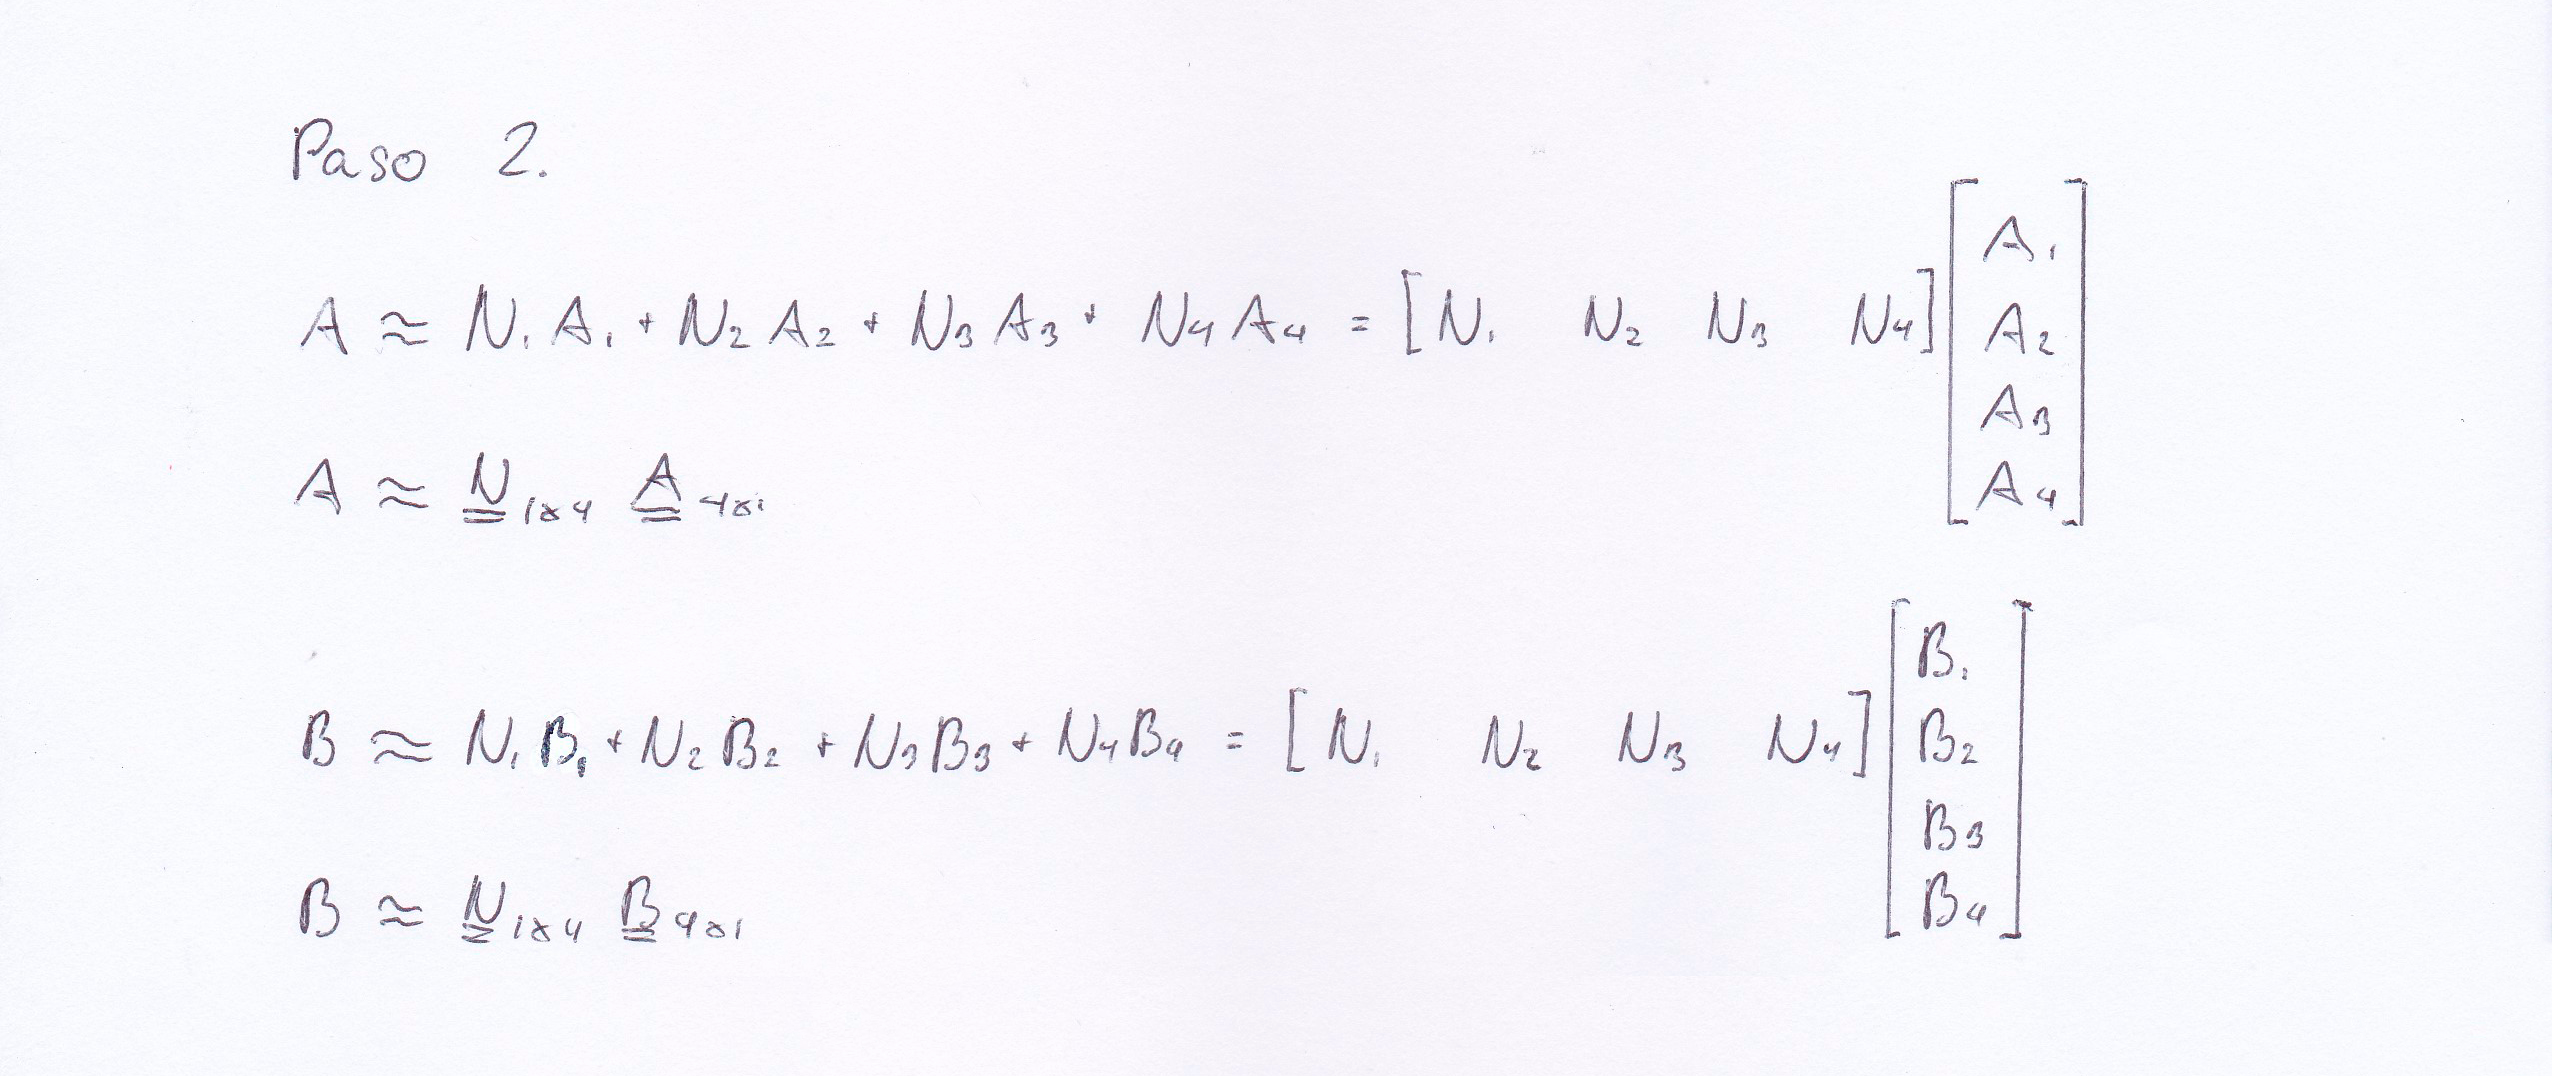 Paso 2.
A ≈ N₁A₁ + N₂A₂ + N₃A₃ + N₄A₄ = [N₁ N₂ N₃ N₄] [A₁ A₂ A₃ A₄]
A ≈ N₁ₓ₄ A₄ₓ₁
B ≈ N₁B₁ + N₂B₂ + N₃B₃ + N₄B₄ = [N₁ N₂ N₃ N₄] [B₁ B₂ B₃ B₄]
B ≈ N₁ₓ₄ B₄ₓ₁